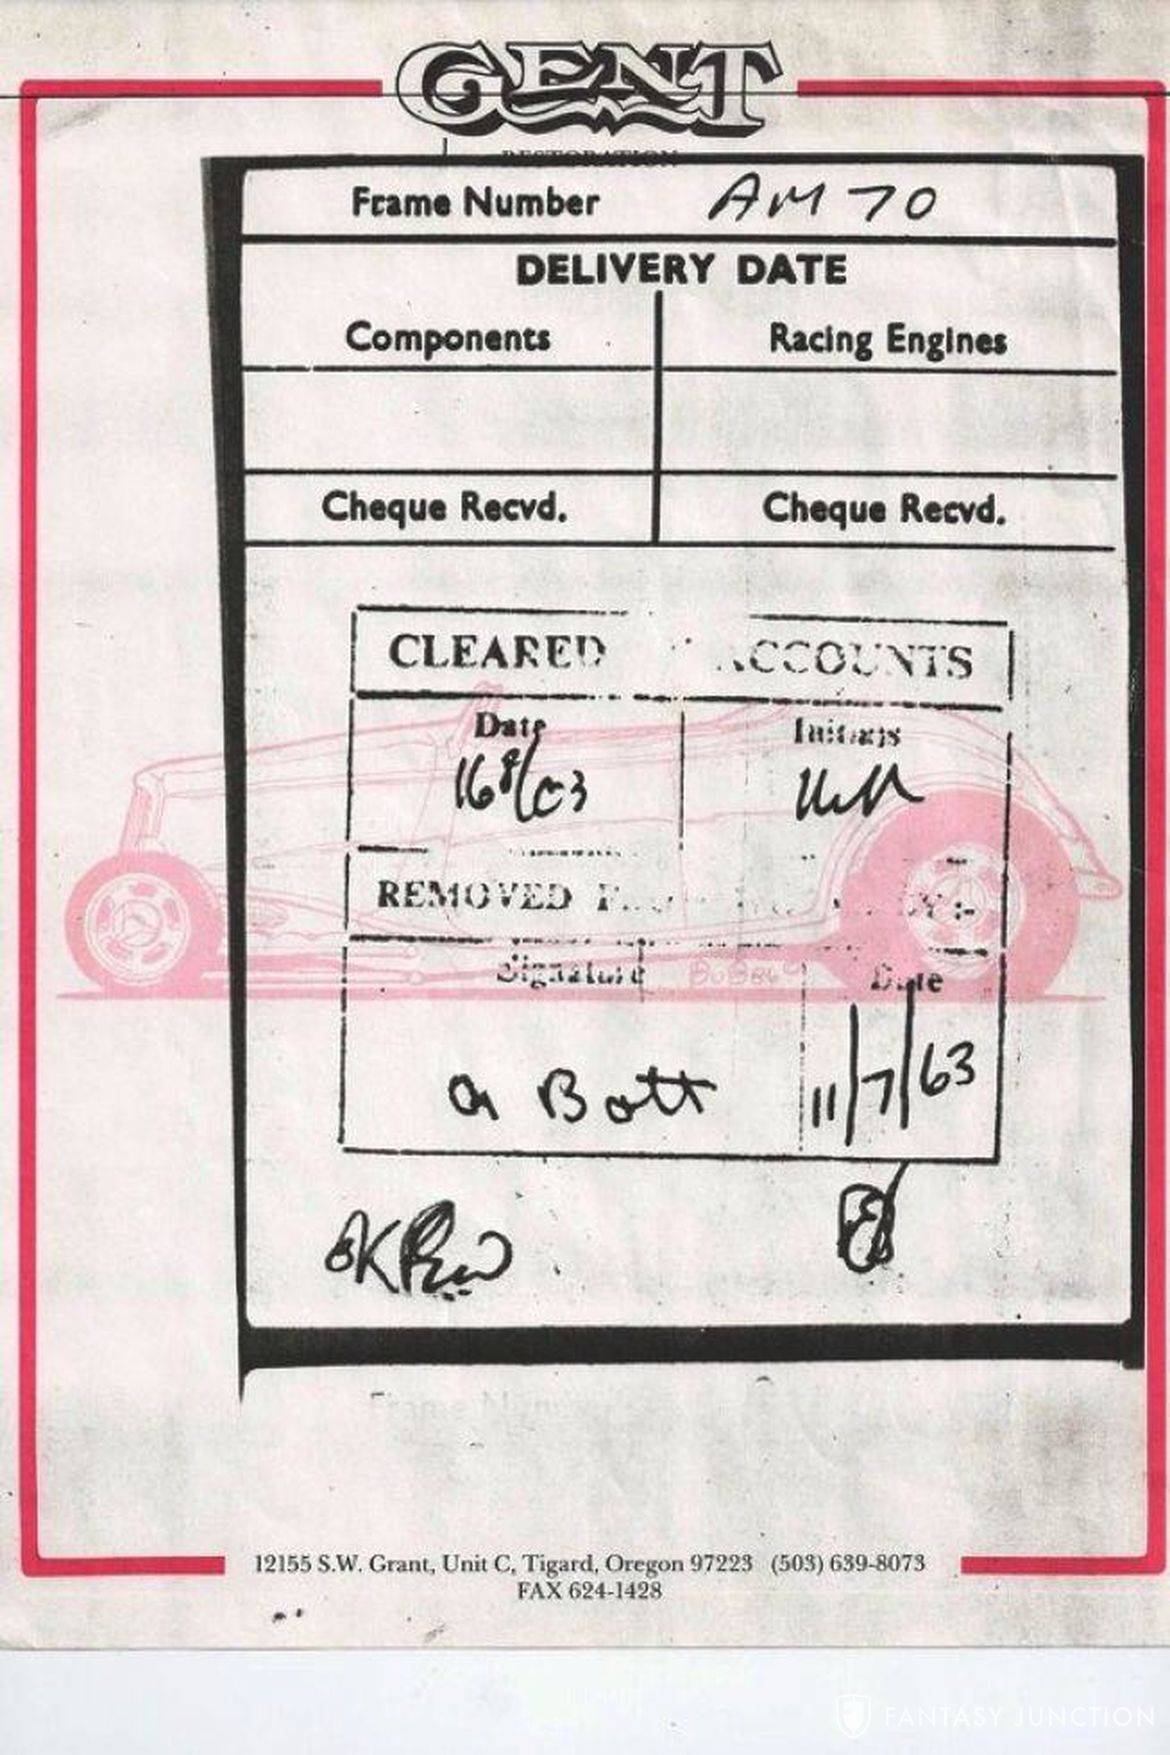 GENT
RESTORATION
Frame Number AM 70
DELIVERY DATE
Components Racing Engines
Cheque Recvd. Cheque Recvd.
CLEARED ACCOUNTS
Date Initials
REMOVED
Signature Date
a Bott 11/7/63
OK
12155 S.W. Grant, Unit C, Tigard, Oregon 97223 (503) 639-8073
FAX 624-1428
FANTASY JUNCTION